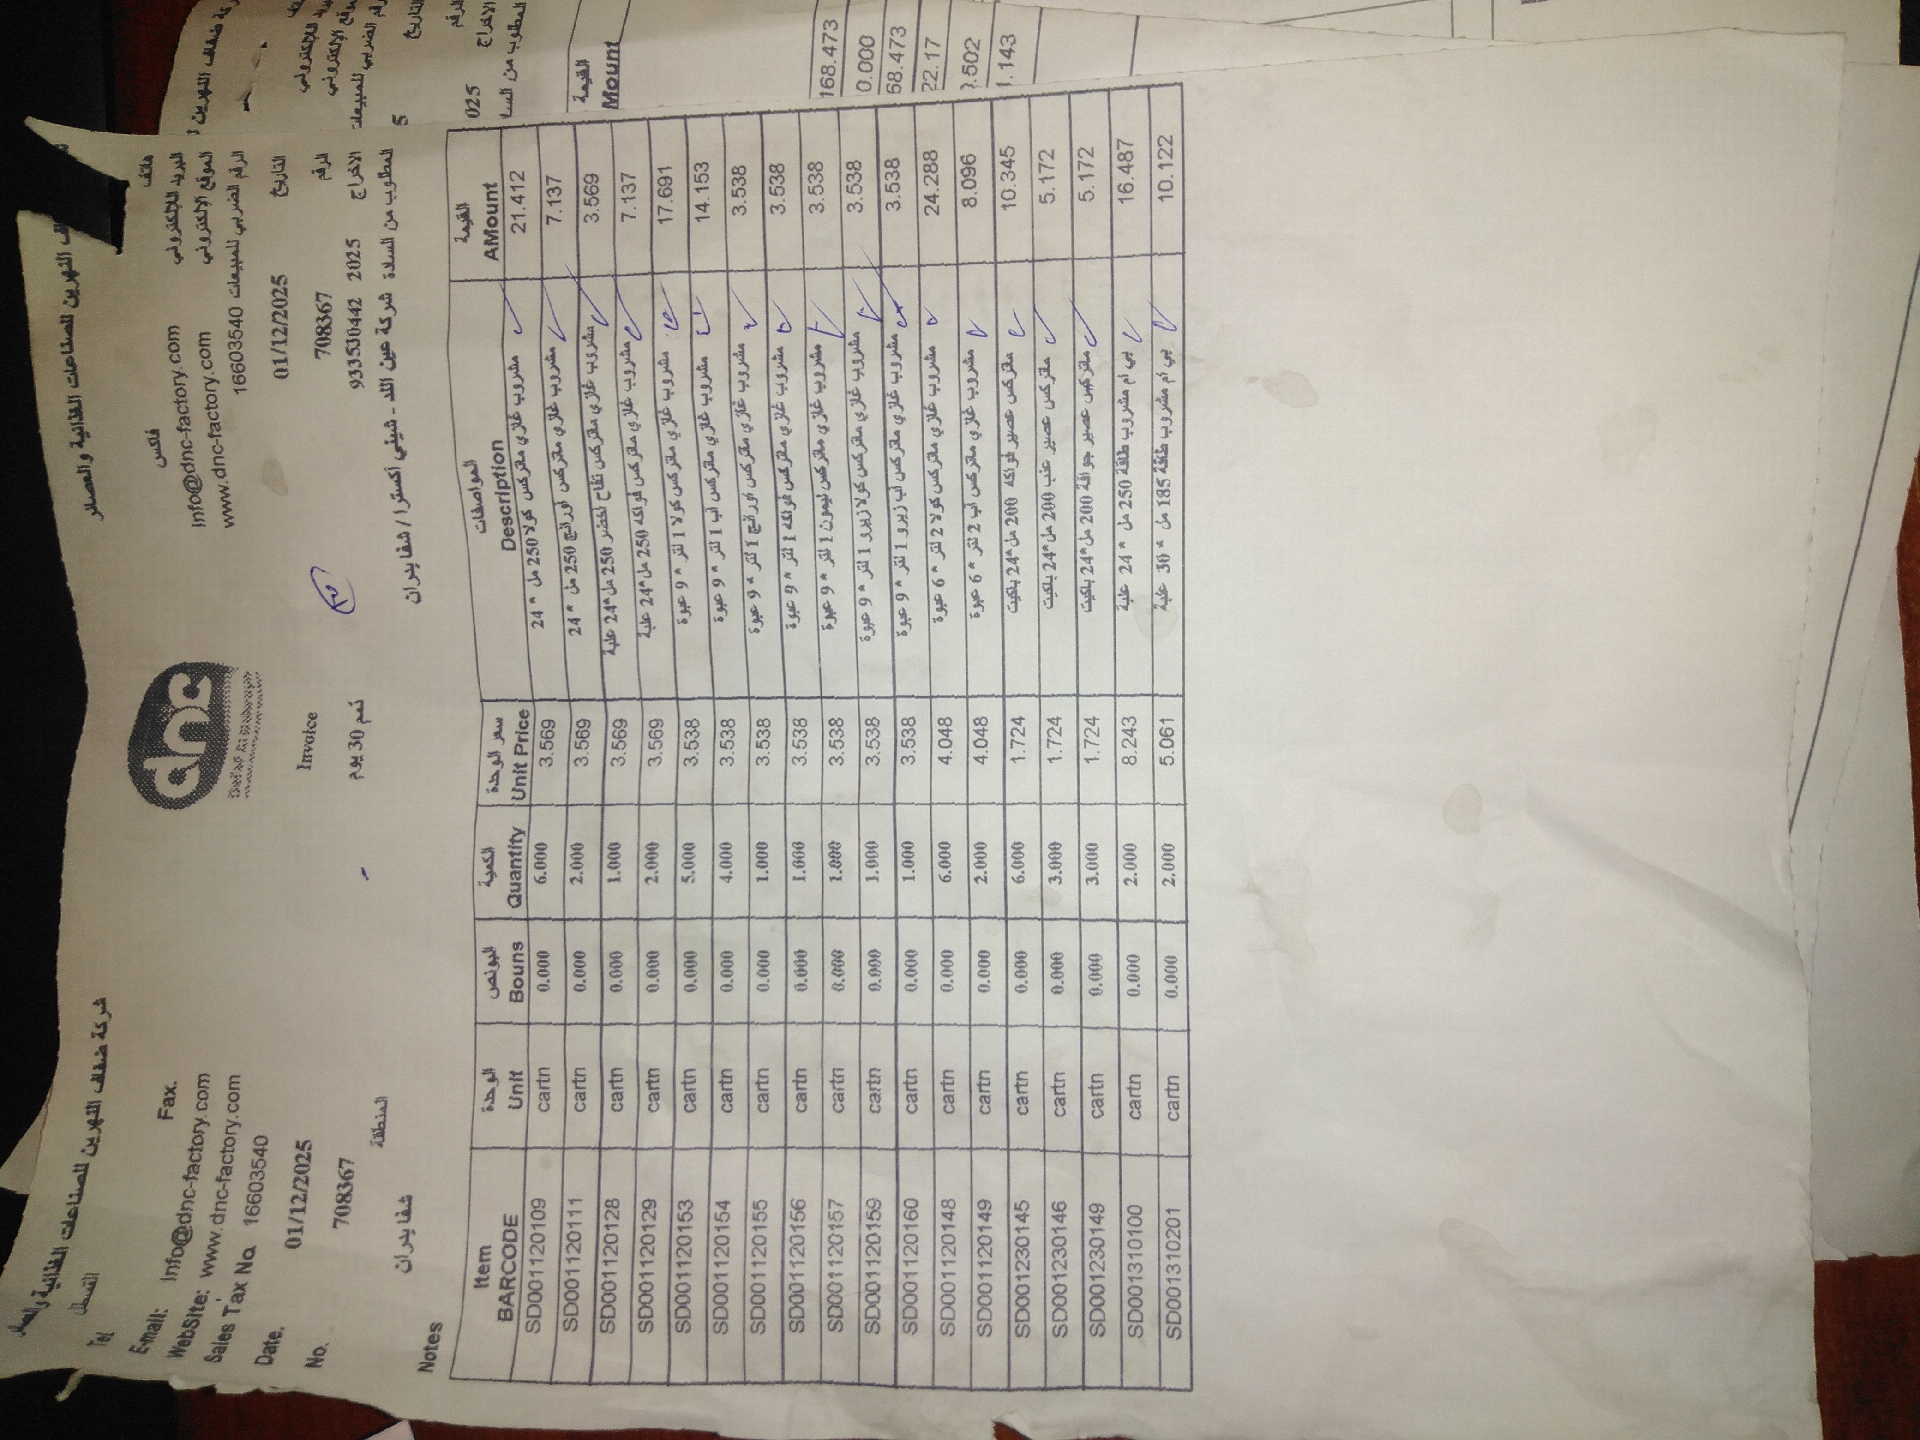 شركة ضفاف النهرين للصناعات الغذائية والعصائر
Tel
Fax.
فاكس
هاتف
E-mail: Info@dnc-factory.com
Info@dnc-factory.com البريد الالكتروني
WebSite: www.dnc-factory.com
www.dnc-factory.com الموقع الالكتروني
Sales Tax No. 16603540
16603540 الرقم الضريبي للمبيعات
dnc
Date. 01/12/2025
01/12/2025 التاريخ
Invoice
No. 708367
708367 الرقم
ذمم 30 يوم
933530442 2025 الافراج
المنطقة
شفا بدران
المطلوب من السادة شركة عين اللد - شيفي اكسترا / شفا بدران
Notes
Item BARCODE | الوحدة Unit | البونص Bouns | الكمية Quantity | سعر الوحدة Unit Price | المواصفات Description | القيمة AMount
SD001120109 cartn 0.000 6.000 3.569 مشروب غازي ماتركس كولا 250 مل * 24 21.412
SD001120111 cartn 0.000 2.000 3.569 مشروب غازي ماتركس اورانج 250 مل * 24 7.137
SD001120128 cartn 0.000 1.000 3.569 مشروب غازي ماتركس تفاح اخضر 250 مل*24 علبة 3.569
SD001120129 cartn 0.000 2.000 3.569 مشروب غازي ماتركس فواكه 250 مل*24 علبة 7.137
SD001120153 cartn 0.000 5.000 3.538 مشروب غازي ماتركس كولا 1 لتر * 9 عبوة 17.691
SD001120154 cartn 0.000 4.000 3.538 مشروب غازي ماتركس اب 1 لتر * 9 عبوة 14.153
SD001120155 cartn 0.000 1.000 3.538 مشروب غازي ماتركس اورانج 1 لتر * 9 عبوة 3.538
SD001120156 cartn 0.000 1.000 3.538 مشروب غازي ماتركس فواكه 1 لتر * 9 عبوة 3.538
SD001120157 cartn 0.000 1.000 3.538 مشروب غازي ماتركس ليمون 1 لتر * 9 عبوة 3.538
SD001120159 cartn 0.000 1.000 3.538 مشروب غازي ماتركس كولا زيرو 1 لتر * 9 عبوة 3.538
SD001120160 cartn 0.000 1.000 3.538 مشروب غازي ماتركس اب زيرو 1 لتر * 9 عبوة 3.538
SD001120148 cartn 0.000 6.000 4.048 مشروب غازي ماتركس كولا 2 لتر * 6 عبوة 24.288
SD001120149 cartn 0.000 2.000 4.048 مشروب غازي ماتركس اب 2 لتر * 6 عبوة 8.096
SD001230145 cartn 0.000 6.000 1.724 ماتركس عصير فواكه 200 مل*24 باكيت 10.345
SD001230146 cartn 0.000 3.000 1.724 ماتركس عصير عنب 200 مل*24 باكيت 5.172
SD001230149 cartn 0.000 3.000 1.724 ماتركس عصير جوافة 200 مل*24 باكيت 5.172
SD001310100 cartn 0.000 2.000 8.243 بي ام مشروب طاقة 250 مل * 24 علبة 16.487
SD001310201 cartn 0.000 2.000 5.061 بي ام مشروب طاقة 185 مل * 30 علبة 10.122
القيمة
Mount
168.473
0.000
68.473
22.17
.502
1.143